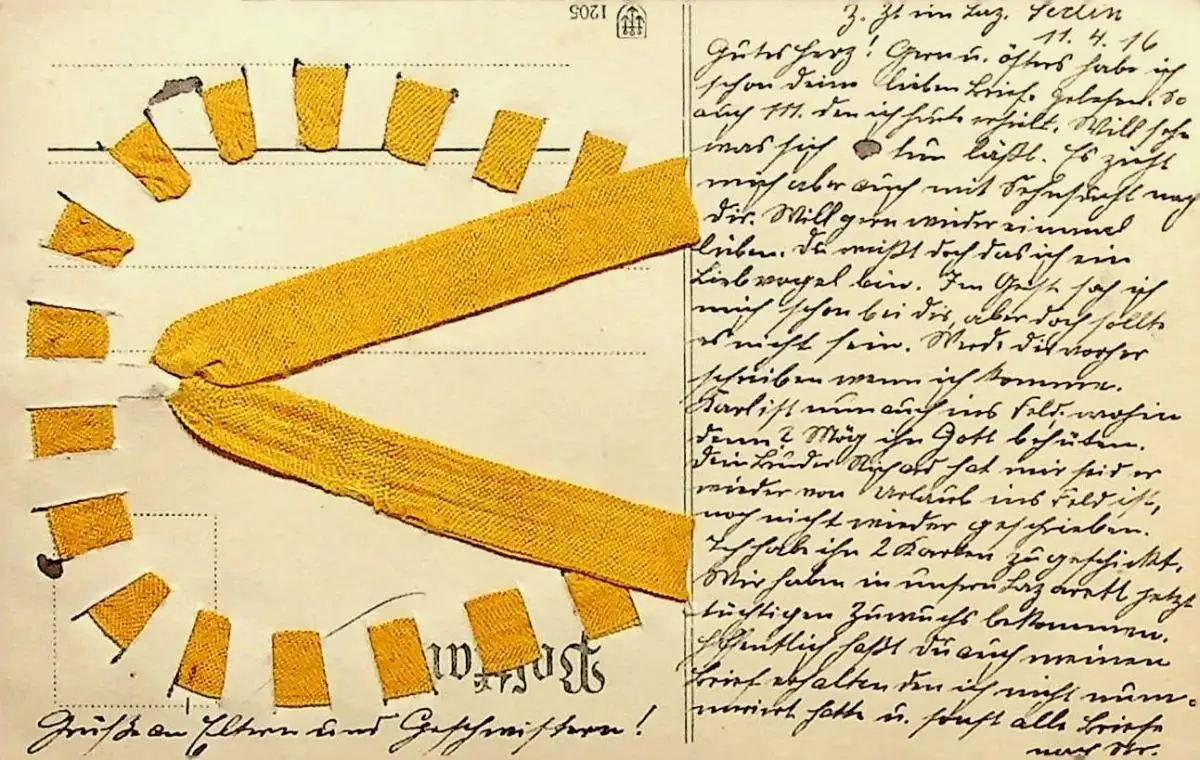 1205
Z. Zt im Laz. Berlin
11. 4. 16
Gutes Herz! Gern u. öfters habe ich
schon deine lieben Briefe gelesen. So
auch 111. den ich heute erhielt. Will sehn
was sich tun läßt. Es zieht
mich aber auch mit Sehnsucht nach
dir. Will gern wieder einmal
lieben. Du weißt doch das ich ein
Liebvogel bin. Im Geist sah ich
mich schon bei dir, aber doch sollte
es nicht sein. Werde dir vorher
schreiben wenn ich komme.
Karl ist nun auch ins Feld, wohin
denn? Mög ihn Gott behüten.
Dein Bruder Richard hat mir seid er
wieder von Urlaub ins Feld ist,
noch nicht wieder geschrieben.
Ich habe ihn 2 Karten zugeschickt.
Wir haben in unsern Lazarett jetzt
tüchtigen Zuwachs bekommen.
Hoffentlich hast du auch meinen
Brief erhalten den ich nicht num-
meriert hatte u. sonst alle Briefe
nach Nr.
Postkar
Grüße an Eltern und Geschwistern!